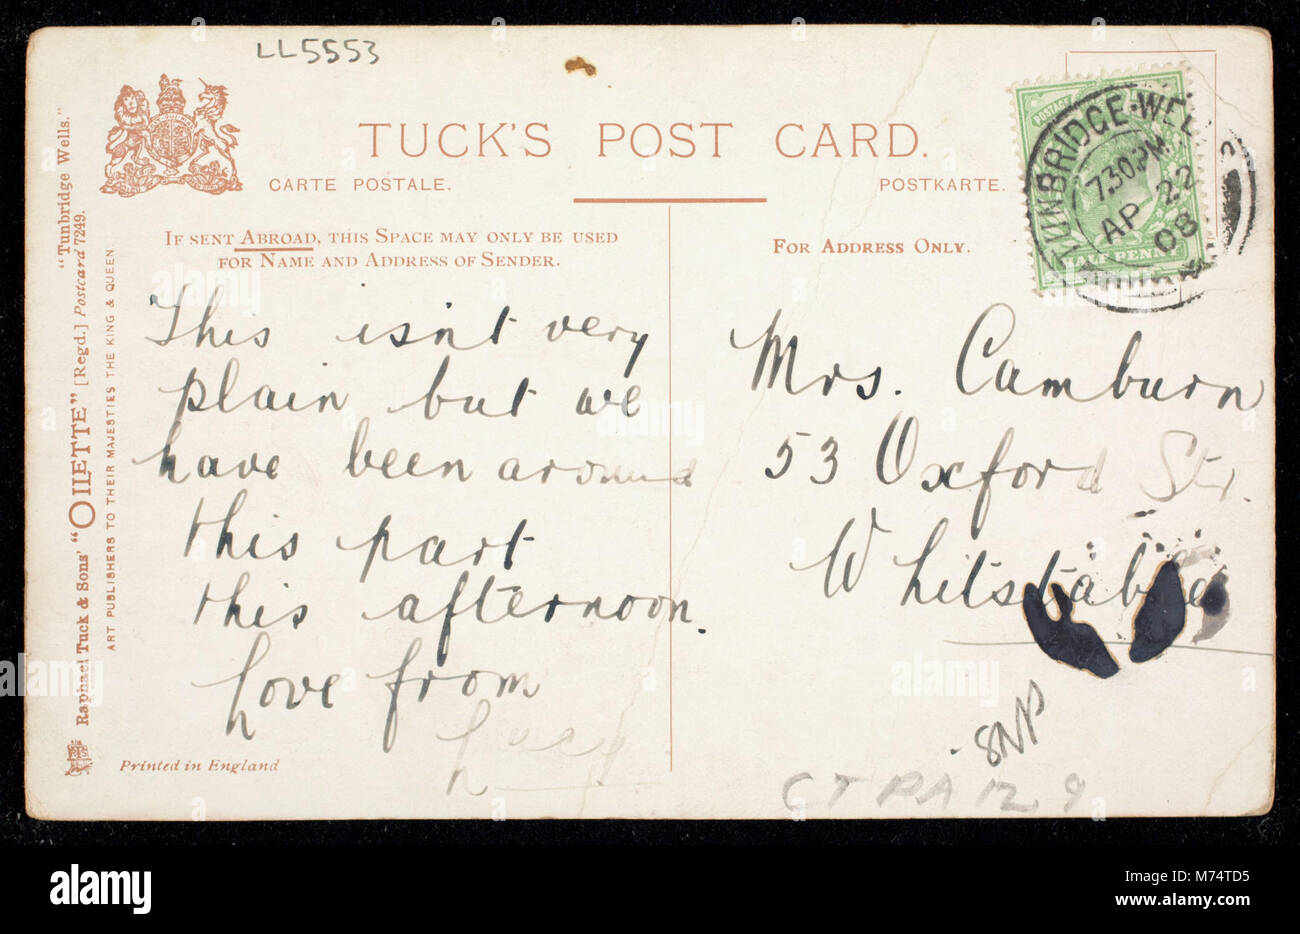 LL5553
TUCK'S POST CARD.
CARTE POSTALE.
POSTKARTE.
IF SENT ABROAD, THIS SPACE MAY ONLY BE USED
FOR NAME AND ADDRESS OF SENDER.
FOR ADDRESS ONLY.
TUNBRIDGE WEL
7.30PM
AP 22
08
HALF PENNY
This isn't very
plain but we
have been around
this part
this afternoon.
Love from
Lucy
Mrs. Camburn
53 Oxford Str.
Whitstable
CTPA12 9
"Tunbridge Wells."
Raphael Tuck & Sons' "OILETTE" [Regd.] Postcard 7249.
ART PUBLISHERS TO THEIR MAJESTIES THE KING & QUEEN
Printed in England
alamy
alamy
Image ID: M74TD5
www.alamy.com